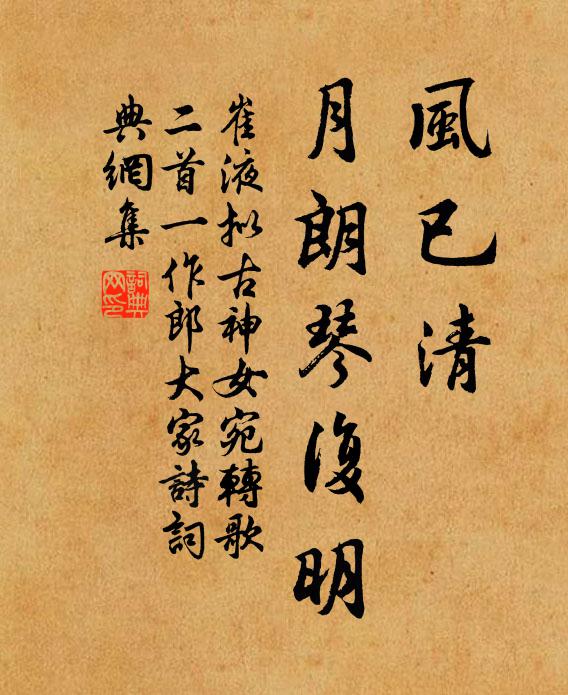 風已清
月朗琴復明
崔液拟古神女宛轉歌
二首一作郎大家詩詞
典網集
詞典
网印